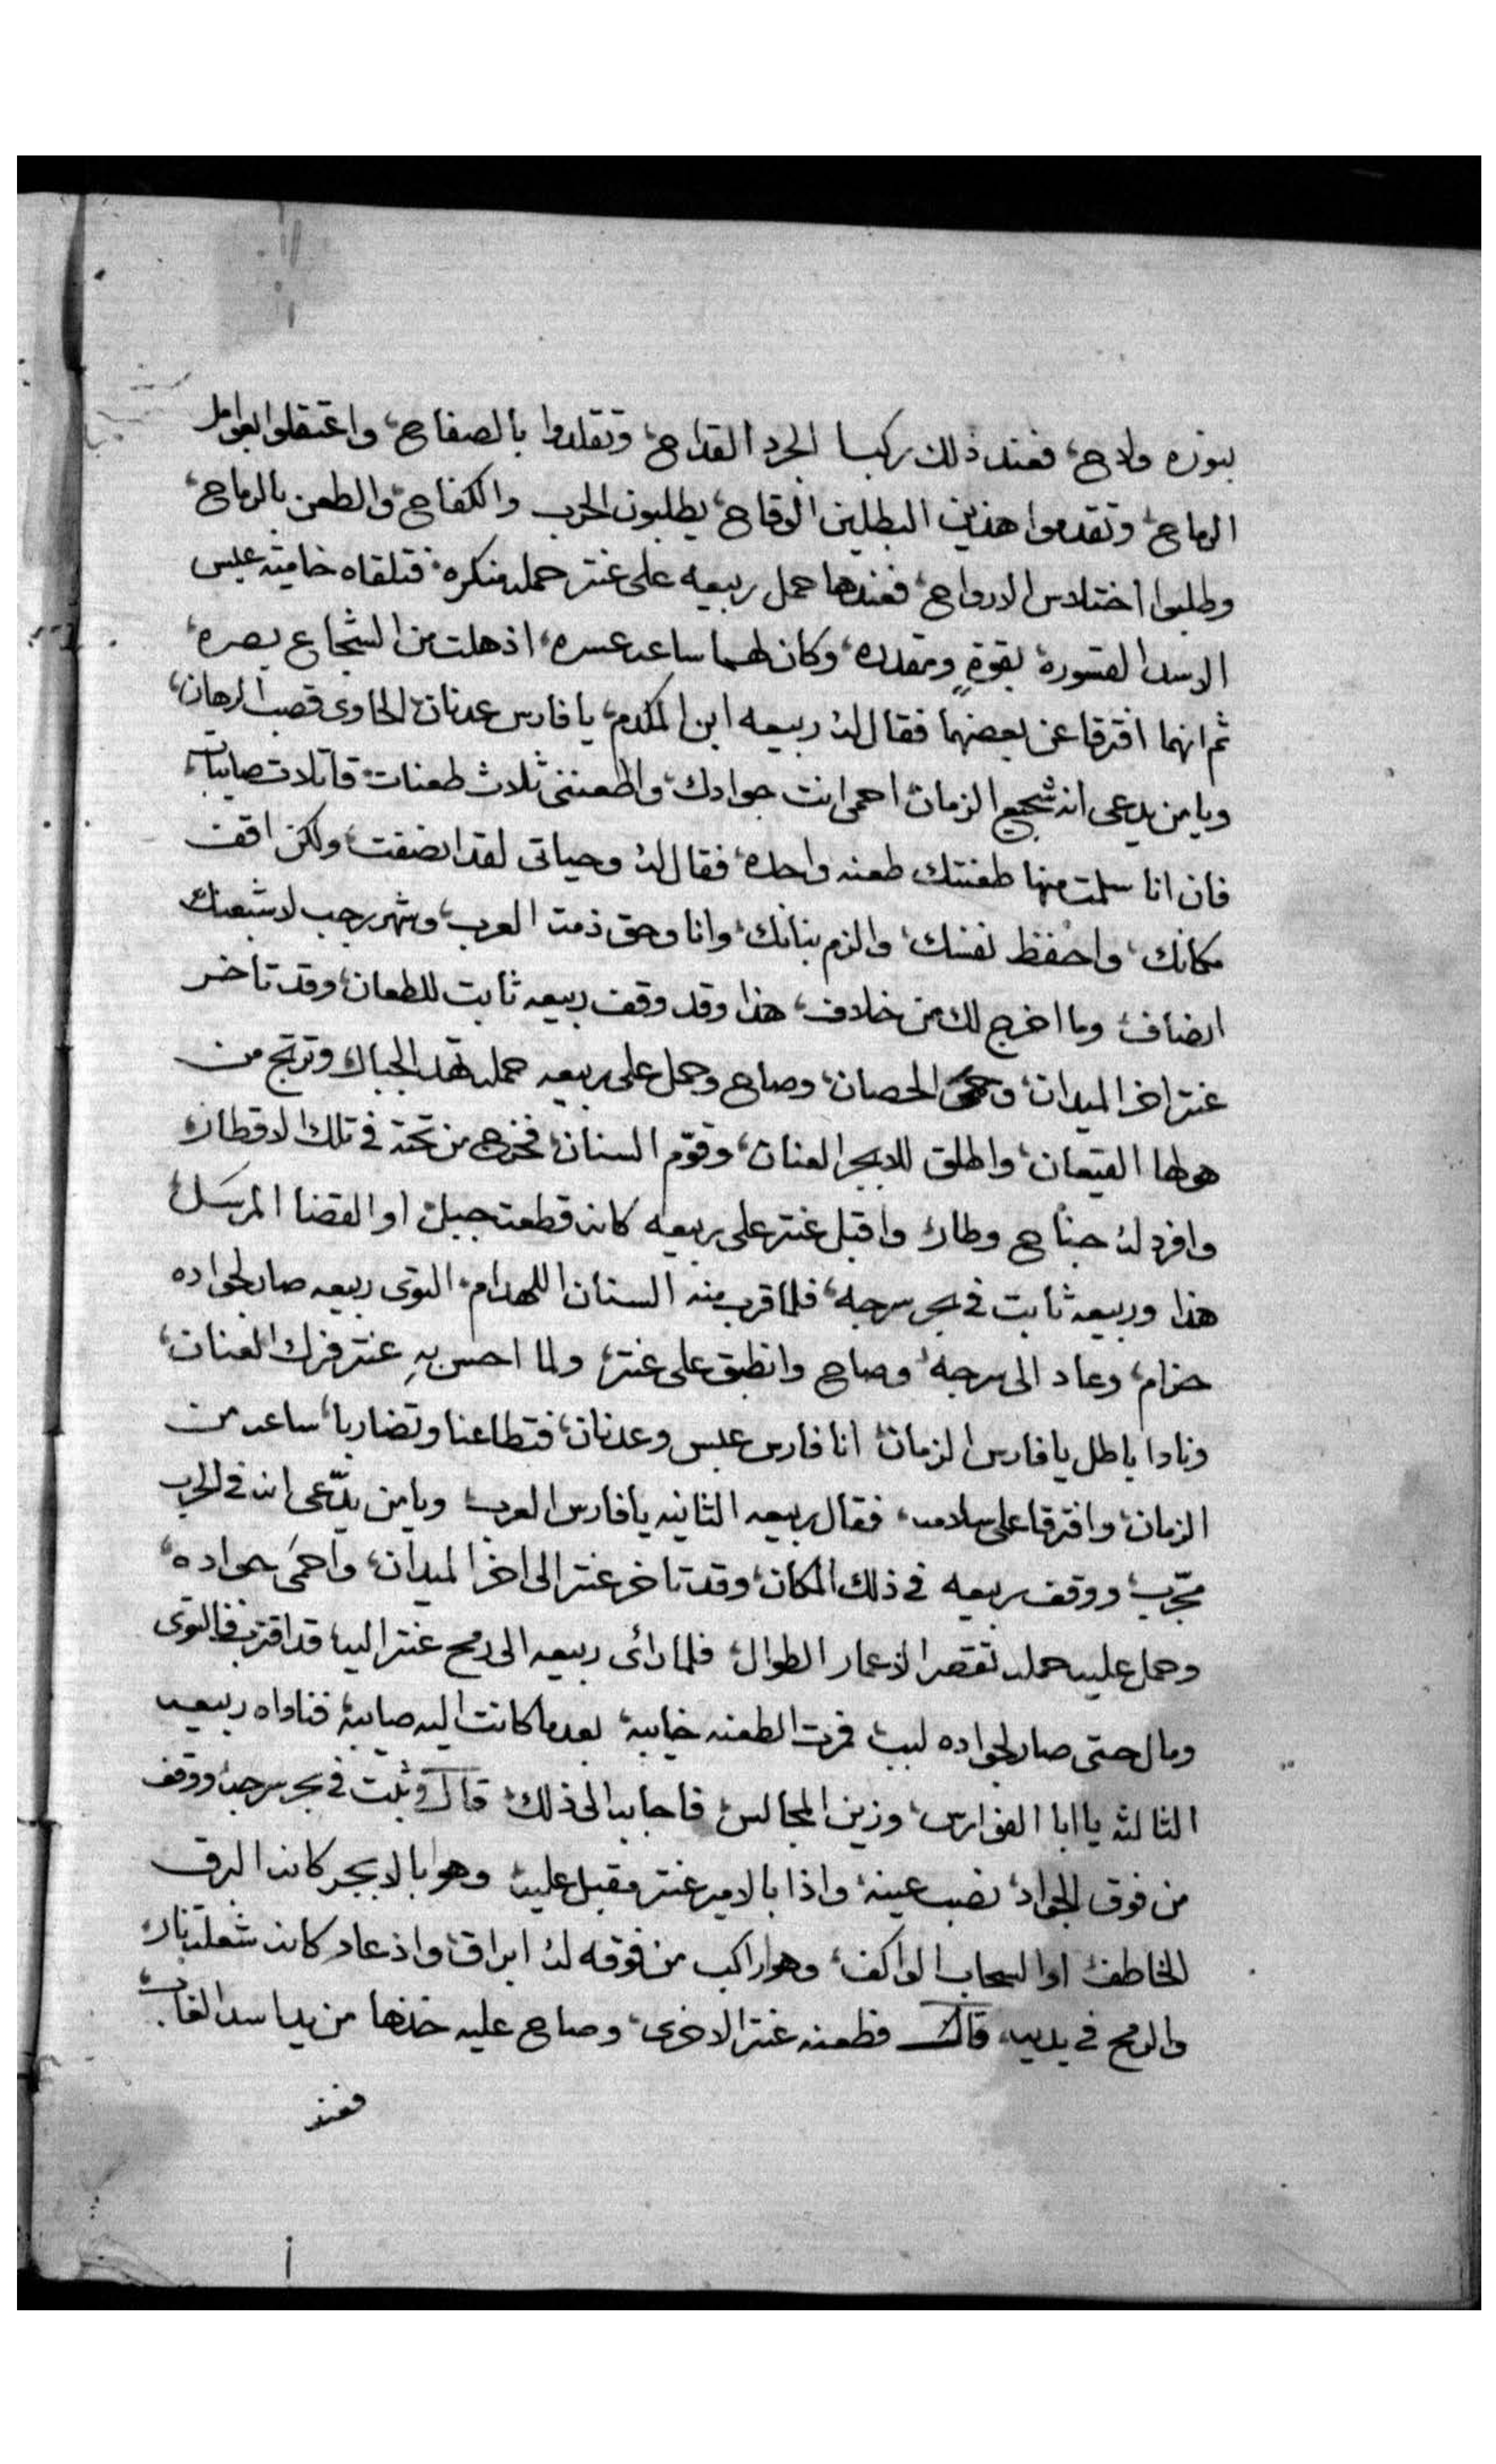 بنوره ولاح، فعند ذلك ركبا الجرد القداح، وتقلدوا بالصفاح، واعتقلوا بعوامل
الرماح، وتقدموا هذين البطلين الوقاح، يطلبون الحرب والكفاح، والطعن بالرماح،
وطلبوا اختلاس الارواح، فعندها حمل ربيعه على عنتر حمله منكره، فتلقاه حاميته عبس
الاسد القسوره، بقوةٍ ومقدره، وكان لهما ساعه عسره، اذهلت من الشجاع بصره،
ثم انهما افترقا عن بعضهما فقال له ربيعه ابن المكدم، يا فارس عدنان، الحاوى قصب الرهان،
ويا من يدعى انه شجيع الزمان، احمى انت جوادك، واطعننى ثلاث طعنات، قاتلات صايبات،
فان انا سلمت منها طعنتك طعنه واحده، فقال له وحياتى لقد انصفت، ولكن اقف
مكانك، واحفظ نفسك، والزم بنانك، وانا وحق ذمت العرب، وشهر رجب لاشبعنك
انصاف، وما اخرج لك من خلاف، هذا وقد وقف ربيعه ثابت للطعان، وقد تاخر
عنتر اخر الميدان، وحمى الحصان، وصاح وحمل على ربيعه حمله تهد الجبال، وترتج من
هولها القيعان، واطلق للابجر العنان، وقوّم السنان، فخرج من تحته في تلك الاقطار،
وافرد له جناح وطار، واقبل عنتر على ربيعه كانه قطعت جبل، او القضا المرسل،
هذا وربيعه ثابت في بحر سرجه، فلما قرب منه السنان اللهدام، التوى ربيعه صار لجواده
حزام، وعاد الى سرجه، وصاح وانطبق على عنتر، ولما احس بهِ عنتر فرك العنان،
ونادا باطل يا فارس الزمان، انا فارس عبس وعدنان، فتطاعنا وتضاربا، ساعه من
الزمان، وافترقا على سلامه، فقال ربيعه الثانيه يا فارس العرب، ويا من يدّعى انه في الحرب
مجرّب، ووقف ربيعه في ذلك المكان، وقد تاخر عنتر الى اخر الميدان، واحمَى جواده،
وحمل عليه حمله تقصر الاعمار الطوال، فلما رائى ربيعه الى رمح عنتر اليه، قد اقترب، فالتوى
ومال حتى صار لجواده لبب، فمرت الطعنه خايبه، بعدما كانت اليه صايبه، فناداه ربيعه
الثالثه يا ابا الفوارس، وزين المجالس، فاجابه الى ذلك، قال وثبت في بحر سرجه، ووقف
من فوق الجواد، نصب عينه، واذا بالامير عنتر مقبل عليه، وهو بالابجر كانه البرق
الخاطف، او السحاب الواكف، وهو راكب من فوقه له ابراق، واذ عاد كانه شعلت نار،
والرمح في يديه، قال فطعنه عنتر الاخرى، وصاح عليه خذها من يد اسد الغاب،
فعند